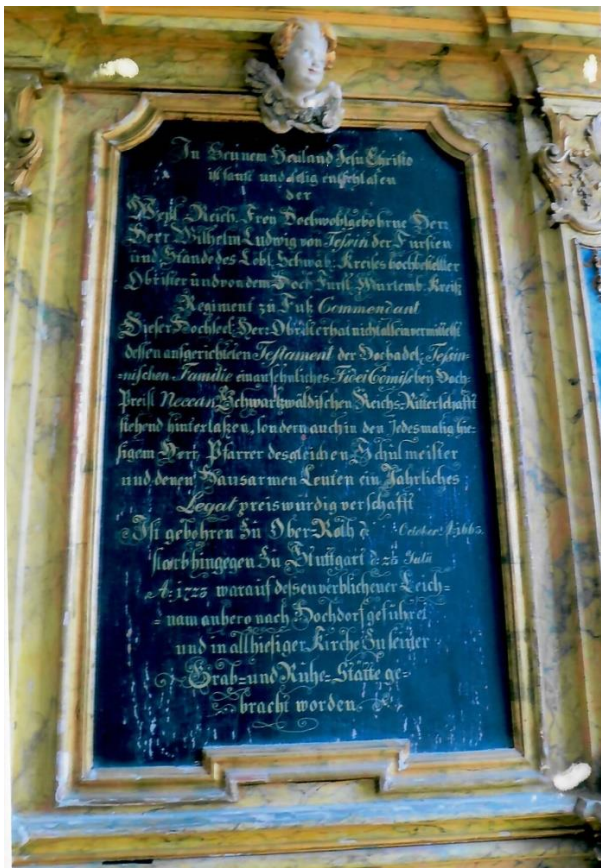 In Seinem Heyland Jesu Christo
ist sanft und selig entschlafen
der
Weyl. Reich. Frey Hochwohlgebohrne Herr
Herr Wilhelm Ludwig von Tessin der Fürsten
und Stände des Löbl. Schwäb: Kreises hochbestellter
Obrister und von dem Hoch Fürstl. Würtemb. Kreiß
Regiment zu Fuß Commendant
Dieser Hochseel. Herr Obrister hat nicht allein vermittelst
dessen aufgerichteten Testament der Hochadel. Tessin-
-nischen Familie ein ansehnliches Fidei Comiß bey Hoch
Preißl Neccar Schwartzwäldischen Reichs-Ritterschafft
stehend hinterlaßen, sondern auch in den Jedesmalig hie-
sigem Herr Pfarrer desgleichen Schulmeister
und denen Hausarmen Leuten ein Jährliches
Legat preiswürdig verschafft
Ist gebohren zu Ober-Roth d. October A: 1663.
starb hingegen zu Stuttgart d. Julii
A: 1723 warauf deßen verblichener Leich-
-nam anhero nach Hochdorf geführet
und in allhiesiger Kirche zu seiner
Grab- und Ruhe-Stätte ge-
bracht worden